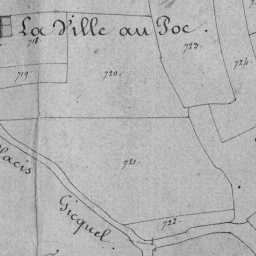 La Ville au Poc.
718
723.
724
719
720.
721.
lacis
Gicquel
722